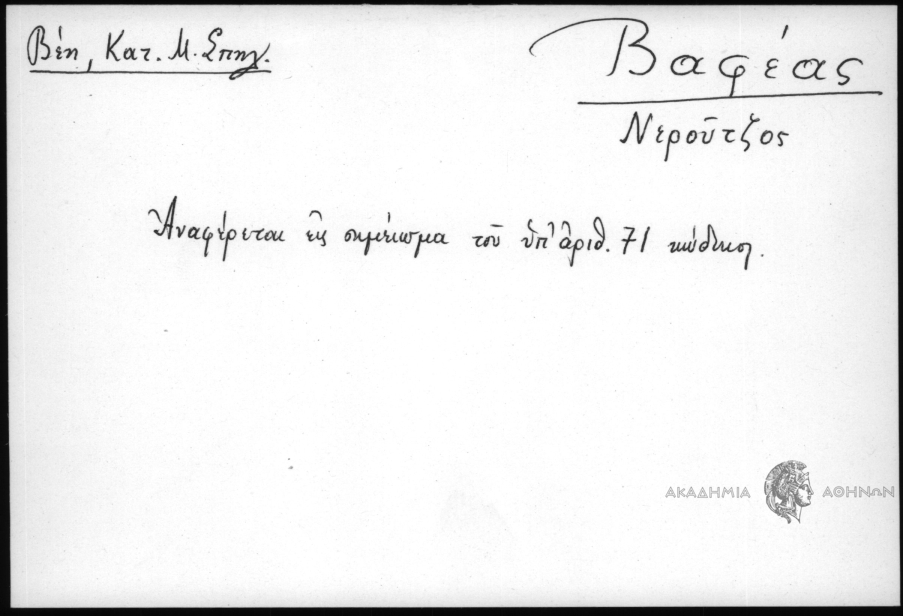 Βέη, Κατ. Μ. Σπηλ.
Βαφέας
Νεροῦτζος
Ἀναφέρεται εἰς σημείωμα τοῦ ὑπ' ἀριθ. 71 κώδικος.
ΑΚΑΔΗΜΙΑ ΑΘΗΝΩΝ